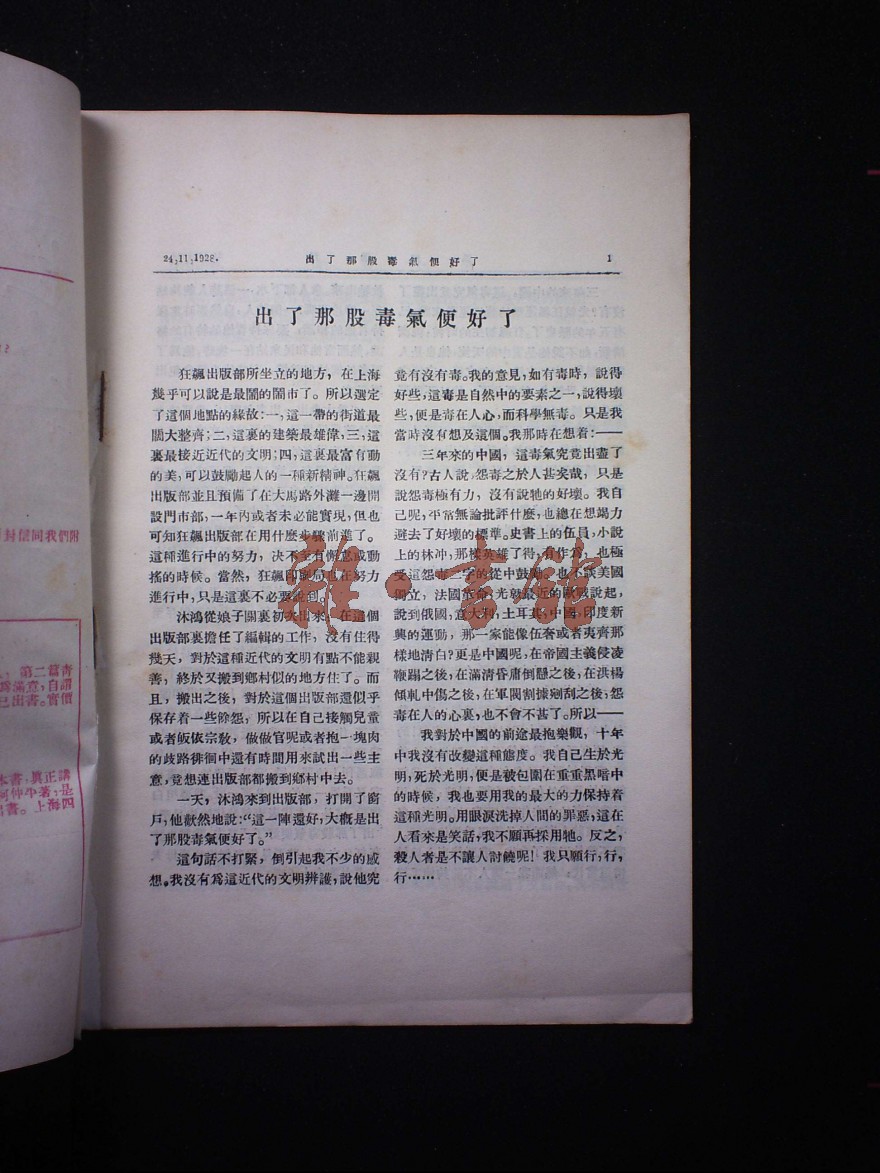 24,11,1928.
出了那股毒氣便好了
1
出了那股毒氣便好了
狂飆出版部所坐立的地方，在上海
幾乎可以說是最鬧的鬧市了。所以選定
了這個地點的緣故：一，這一帶的街道最
闊大整齊；二，這裏的建築最雄偉，三，這
裏最接近近代的文明；四，這裏最富有動
的美，可以鼓勵起人的一種新精神。狂飆
出版部並且預備了在大馬路外灘一邊開
設門市部，一年內或者未必能實現，但也
可知狂飆出版部在用什麼步驟前進了。
這種進行中的努力，决不至有懈怠或動
搖的時候。當然，狂飆印刷局也在努力
進行中，只是這裏不必要說到。
沐鴻從娘子關裏初次出來，在這個
出版部裏擔任了編輯的工作，沒有住得
幾天，對於這種近代的文明有點不能親
善，終於又搬到鄉村似的地方住了。而
且，搬出之後，對於這個出版部還似乎
保存着一些餘怨，所以在自己接觸兒童
或者皈依宗敎，做做官呢或者抱一塊肉
的歧路徘徊中還有時間用來試出一些主
意，竟想連出版部都搬到鄉村中去。
一天，沐鴻來到出版部，打開了窗
戶，他歡然地說：“這一陣還好，大概是出
了那股毒氣便好了。”
這句話不打緊，倒引起我不少的感
想。我沒有爲這近代的文明辨護，說他究
竟有沒有毒。我的意見，如有毒時，說得
好些，這毒是自然中的要素之一，說得壞
些，便是毒在人心，而科學無毒。只是我
當時沒有想及這個。我那時在想着：——
三年來的中國，這毒氣究竟出盡了
沒有？古人說，怨毒之於人甚矣哉，只是
說怨毒極有力，沒有說牠的好壞。我自
己呢，平常無論批評什麼，也總在想竭力
避去了好壞的標準。史書上的伍員，小說
上的林冲，那樣英雄了得，有作爲，也極
受這怨毒二字的從中鼓勵。也不談美國
獨立，法國革命，光就最近的歐戰說起，
說到俄國，意大利，土耳其，中國，印度新
興的運動，那一家能像伍奢或者夷齊那
樣地清白？更是中國呢，在帝國主義侵凌
鞭蹋之後，在滿清昏庸倒懸之後，在洪楊
傾軋中傷之後，在軍閥割據剜刮之後，怨
毒在人的心裏，也不會不甚了。所以——
我對於中國的前途最抱樂觀，十年
中我沒有改變這種態度。我自己生於光
明，死於光明，便是被包圍在重重黑暗中
的時候，我也要用我的最大的力保持着
這種光明。用眼淚洗掉人間的罪惡，這在
人看來是笑話，我不願再採用牠。反之，
殺人者是不讓人討饒呢！我只願行，行，
行……
雜·書館
封信同我們附
第二篇靑
爲滿意，自謂
已出書。實價
本書，眞正講
柯仲平著，是
出書。上海四